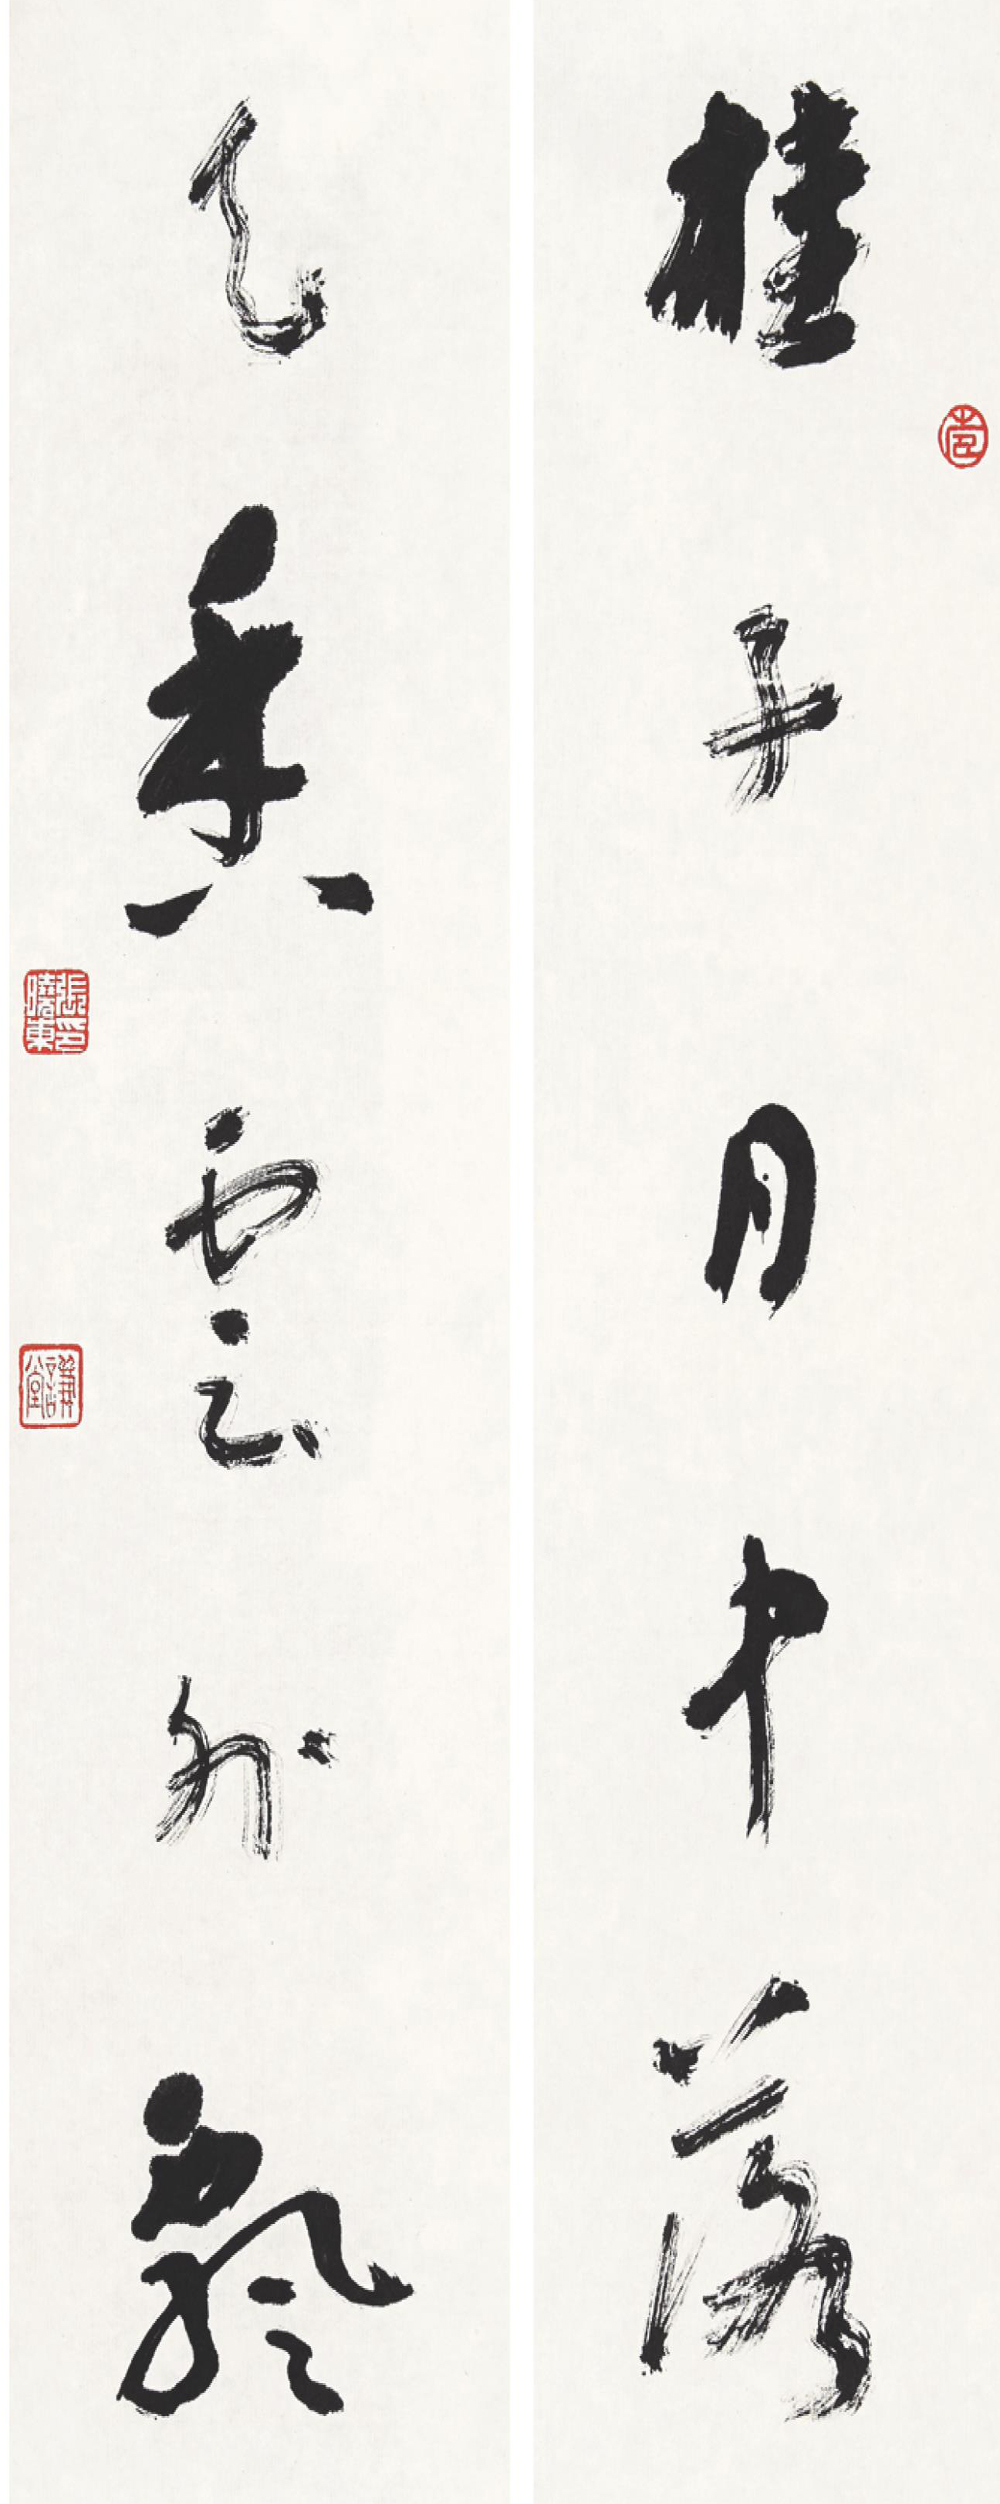 桂子月中落
天香雲外飄
張曉東印
謙語堂